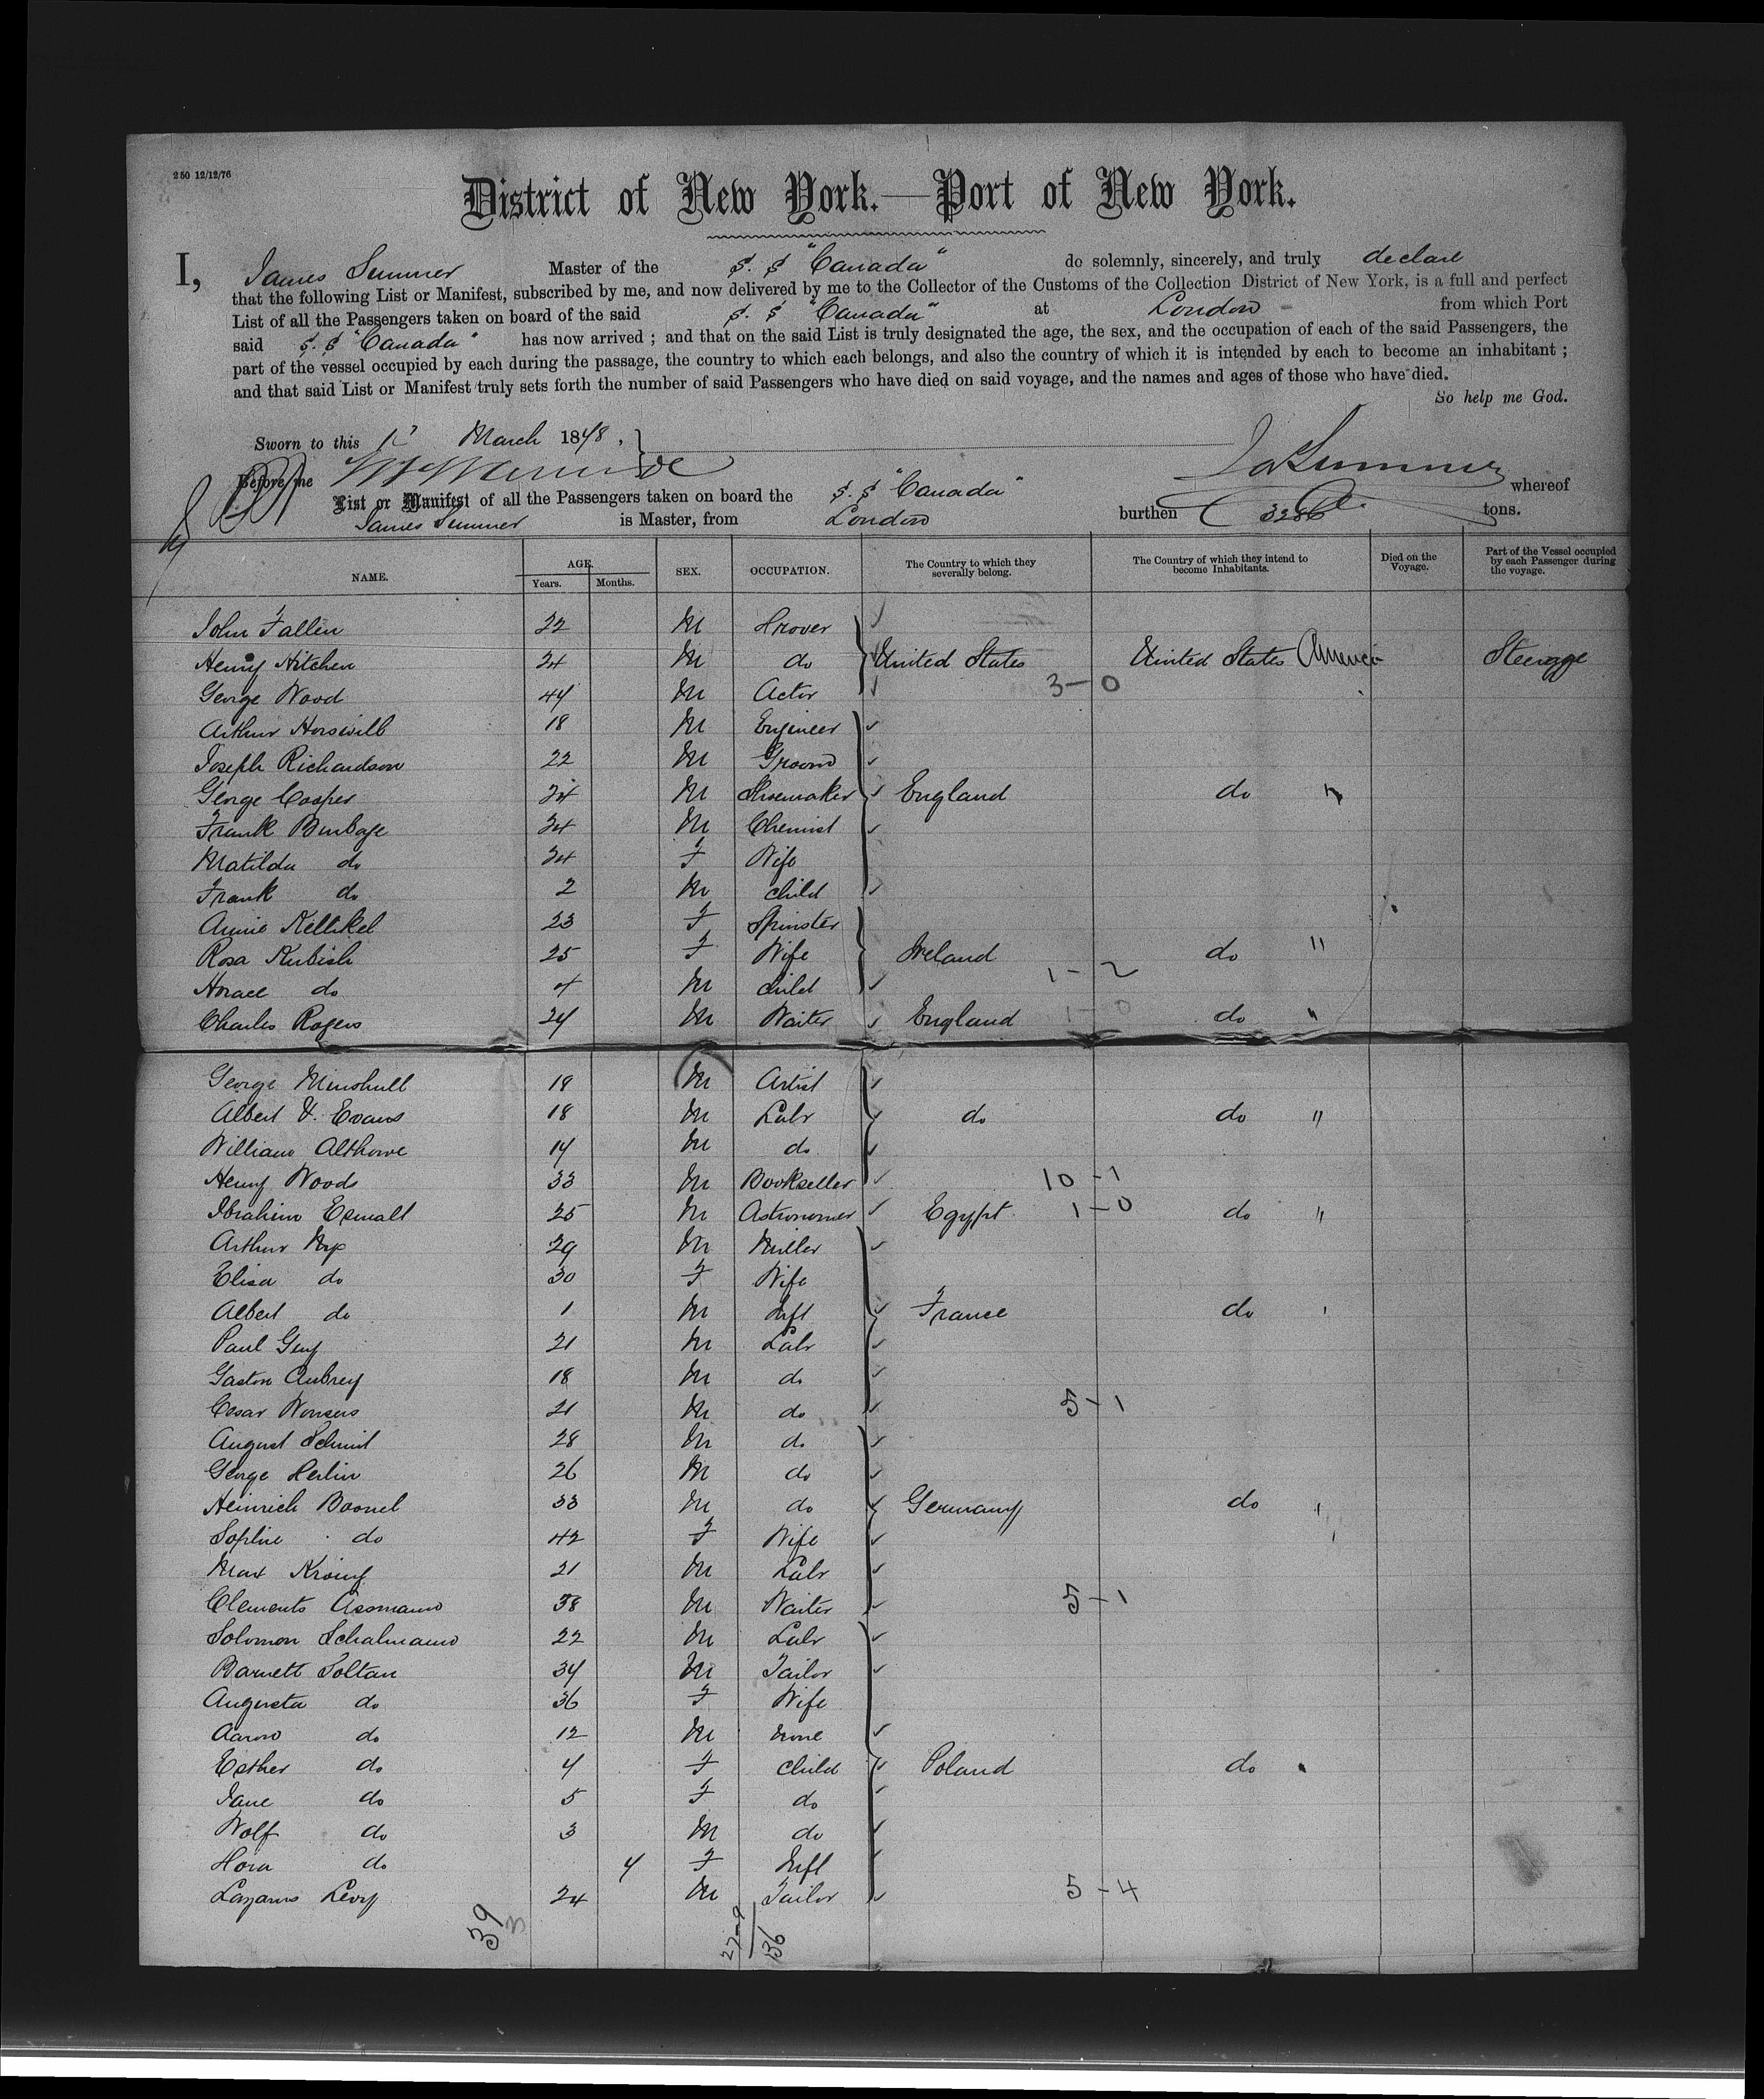 250 12/12/76
District of New York.—Port of New York.
I, James Sumner Master of the S.S "Canada" do solemnly, sincerely, and truly declare
that the following List or Manifest, subscribed by me, and now delivered by me to the Collector of the Customs of the Collection District of New York, is a full and perfect
List of all the Passengers taken on board of the said S.S "Canada" at London from which Port
said S.S "Canada" has now arrived ; and that on the said List is truly designated the age, the sex, and the occupation of each of the said Passengers, the
part of the vessel occupied by each during the passage, the country to which each belongs, and also the country of which it is intended by each to become an inhabitant ;
and that said List or Manifest truly sets forth the number of said Passengers who have died on said voyage, and the names and ages of those who have died.
So help me God.
Sworn to this March 18
Before me
Jas Sumner
List or Manifest of all the Passengers taken on board the S.S "Canada" whereof
James Sumner is Master, from London burthen 3286 tons.
NAME. AGE. Years. Months. SEX. OCCUPATION. The Country to which they severally belong. The Country of which they intend to become Inhabitants. Died on the Voyage. Part of the Vessel occupied by each Passenger during the voyage.
John Fallen 22 M Drover
Henry Hitchen 24 M do United States United States America Steerage
George Wood 44 M Actor 3-0
Arthur Horswill 18 M Engineer
Joseph Richardson 22 M Groom
George Cooper 24 M Shoemaker England do "
Frank Burbage 24 M Chemist
Matilda do 24 F Wife
Frank do 2 M child
Annie Kellikel 23 F Spinster
Rosa Kubish 25 F Wife Ireland do "
Horace do 4 M child 1-2
Charles Rogers 24 M Waiter England 1-0 do "
George Minshull 18 M Artist
Albert V. Evans 18 M Labr do do "
William Althorne 14 M do
Henry Woods 33 M Bookseller 10-1
Ibrahim Esmalt 25 M Astronomer Egypt 1-0 do "
Arthur 29 M Miller
Elisa do 30 F Wife
Albert do 1 M Inft France do "
Paul Geny 21 M Labr
Gaston Aubrey 18 M do
Cesar Wonsers 21 M do 5-1
August Schmit 28 M do
George Herlin 26 M do
Heinrich Boonel 33 M do Germany do "
Sophie do 42 F Wife
Max Kroing 21 M Labr
Clements Assmann 38 M Waiter 5-1
Solomon Schalmann 22 M Labr
Barnett Soltan 34 M Tailor
Augusta do 36 F Wife
Aaron do 12 M none
Esther do 4 F child Poland do "
Jane do 5 F do
Wolf do 3 M do
do 4 F Inft
Lazarus Levy 24 M Tailor 5-4
39
27-9
136